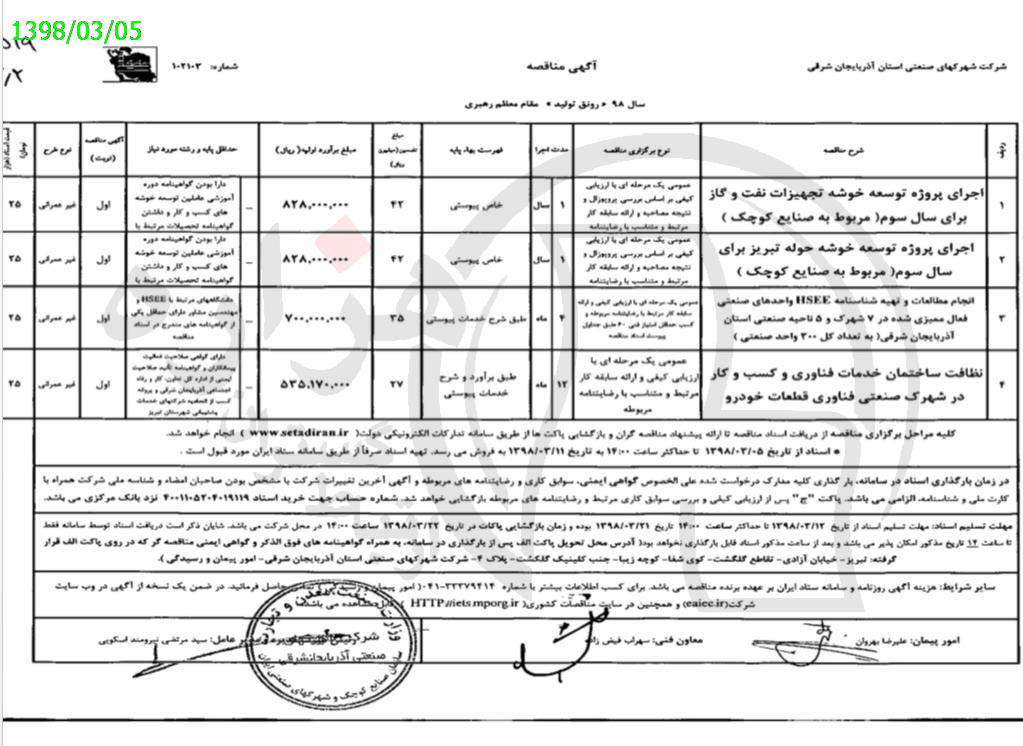 1398/03/05
شرکت شهرکهای صنعتی استان آذربایجان شرقی
آگهی مناقصه
شماره: ۱۰۲۱۰۳
سال ۹۸ «رونق تولید» مقام معظم رهبری
ردیف
شرح مناقصه
نوع برگزاری مناقصه
مدت اجرا
فهرست بهاء پایه
مبلغ تضمین(میلیون ریال)
مبلغ برآورد اولیه( ریال)
حداقل پایه و رشته مورد نیاز
آگهی مناقصه (نوبت)
نوع طرح
۱
اجرای پروژه توسعه خوشه تجهیزات نفت و گاز
برای سال سوم( مربوط به صنایع کوچک )
عمومی یک مرحله ای با ارزیابی
کیفی بر اساس بررسی پروپوزال و
نتیجه مصاحبه و ارائه سابقه کار
مرتبط و متناسب با رضایتنامه
۱ سال
خاص پیوستی
۴۲
۸۲۸,۰۰۰,۰۰۰
دارا بودن گواهینامه دوره
آموزشی عاملین توسعه خوشه
های کسب و کار و داشتن
گواهینامه تحصیلات مرتبط با
اول
غیر عمرانی
۲۵
۲
اجرای پروژه توسعه خوشه حوله تبریز برای
سال سوم( مربوط به صنایع کوچک )
عمومی یک مرحله ای با ارزیابی
کیفی بر اساس بررسی پروپوزال و
نتیجه مصاحبه و ارائه سابقه کار
مرتبط و متناسب با رضایتنامه
۱ سال
خاص پیوستی
۴۲
۸۲۸,۰۰۰,۰۰۰
دارا بودن گواهینامه دوره
آموزشی عاملین توسعه خوشه
های کسب و کار و داشتن
گواهینامه تحصیلات مرتبط با
اول
غیر عمرانی
۲۵
۳
انجام مطالعات و تهیه شناسنامه HSEE واحدهای صنعتی
فعال ممیزی شده در ۷ شهرک و ۵ ناحیه صنعتی استان
آذربایجان شرقی( به تعداد کل ۳۰۰ واحد صنعتی )
عمومی یک مرحله ای با ارزیابی کیفی و ارائه
سابقه کار مرتبط با رضایتنامه مربوطه و
کسب حداقل امتیاز فنی ۶۰ طبق جداول
پیوست اسناد مناقصه
۴ ماه
طبق شرح خدمات پیوستی
۳۵
۷۰۰,۰۰۰,۰۰۰
دانشگاههای مرتبط با HSEE و
مهندسین مشاور دارای حداقل یکی
از گواهینامه های مندرج در اسناد
مناقصه
اول
غیر عمرانی
۲۵
۴
نظافت ساختمان خدمات فناوری و کسب و کار
در شهرک صنعتی فناوری قطعات خودرو
عمومی یک مرحله ای با
ارزیابی کیفی و ارائه سابقه کار
مرتبط و متناسب با رضایتنامه
مربوطه
۱۲ ماه
طبق برآورد و شرح
خدمات پیوستی
۲۷
۵۳۵,۱۷۰,۰۰۰
دارای گواهی صلاحیت فعالیت
پیمانکاران و گواهینامه تأئید صلاحیت
ایمنی از اداره کل تعاون، کار و رفاه
اجتماعی آذربایجان شرقی و پروانه
کسب از اتحادیه شرکتهای خدمات
پشتیبانی شهرستان تبریز
اول
غیر عمرانی
۲۵
کلیه مراحل برگزاری مناقصه از دریافت اسناد مناقصه تا ارائه پیشنهاد مناقصه گران و بازگشایی پاکت ها از طریق سامانه تدارکات الکترونیکی دولت( www.setadiran.ir ) انجام خواهد شد.
* اسناد از تاریخ ۱۳۹۸/۰۳/۰۵ تا حداکثر ساعت ۱۴:۰۰ به تاریخ ۱۳۹۸/۰۳/۱۱ به فروش می رسد. تهیه اسناد صرفاً از طریق سامانه ستاد ایران مورد قبول است .
در زمان بارگذاری اسناد در سامانه، بار گذاری کلیه مدارک درخواست شده علی الخصوص گواهی ایمنی، سوابق کاری و رضایتنامه های مربوطه و آگهی آخرین تغییرات شرکت با مشخص بودن صاحبان امضاء و شناسه ملی شرکت همراه با
کارت ملی و شناسنامه، الزامی می باشد. پاکت "ج" پس از ارزیابی کیفی و بررسی سوابق کاری مرتبط و رضایتنامه های مربوطه بازگشایی خواهد شد. شماره حساب جهت خرید اسناد ۴۰۰۱۱۰۵۲۰۴۰۱۹۱۱۹ نزد بانک مرکزی می باشد.
مهلت تسلیم اسناد: مهلت تسلیم اسناد از تاریخ ۱۳۹۸/۰۳/۱۲ تا حداکثر ساعت ۱۴:۰۰ تاریخ ۱۳۹۸/۰۳/۲۱ بوده و زمان بازگشایی پاکات در تاریخ ۱۳۹۸/۰۳/۲۲ ساعت ۱۴:۰۰ در محل شرکت می باشد. شایان ذکر است دریافت اسناد توسط سامانه فقط
تا ساعت ۱۴ تاریخ مذکور امکان پذیر می باشد و بعد از ساعت مذکور اسناد قابل بارگذاری نخواهد بود( آدرس محل تحویل پاکت الف پس از بارگذاری در سامانه، به همراه گواهینامه های فوق الذکر و گواهی ایمنی مناقصه گر که در روی پاکت الف قرار
گرفته: تبریز - خیابان آزادی- تقاطع گلگشت- کوی شفا- کوچه زیبا- جنب کلینیک گلگشت- پلاک ۴- شرکت شهرکهای صنعتی استان آذربایجان شرقی- امور پیمان و رسیدگی ).
سایر شرایط: هزینه آگهی روزنامه و سامانه ستاد ایران بر عهده برنده مناقصه می باشد. برای کسب اطلاعات بیشتر با شماره ۳۳۳۷۹۴۱۴-۰۴۱( امور پیمان و حاصل فرمائید. در ضمن یک نسخه از آگهی در وب سایت
شرکت(eaicc.ir) و همچنین در سایت مناقصات کشوری( HTTP://iets.mporg.ir ) قابل مشاهده می باشد.
امور پیمان: علیرضا بهروان
معاون فنی: سهراب فیض زاده
مدیر عامل: سید مرتضی نیرومند اسکویی
وزارت صنعت، معدن و تجارت
شرکت
صنعتی آذربایجانشرقی
سازمان صنایع کوچک و شهرکهای صنعتی ایران